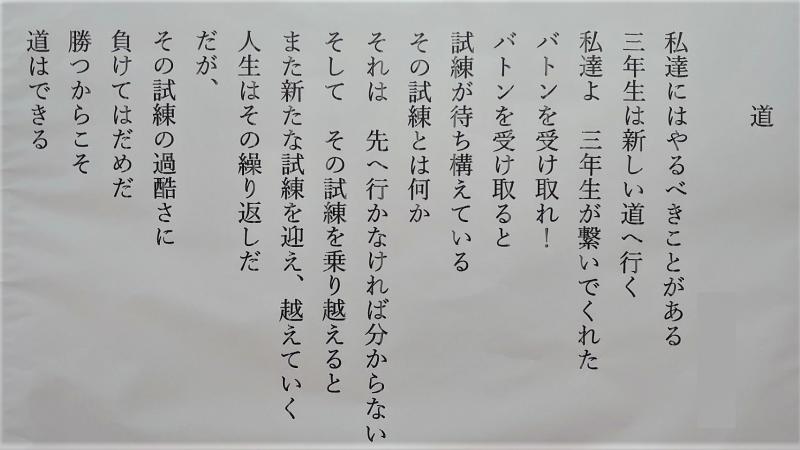 道
私達にはやるべきことがある
三年生は新しい道へ行く
私達よ　三年生が繋いでくれた
バトンを受け取れ！
バトンを受け取ると
試練が待ち構えている
その試練とは何か
それは　先へ行かなければ分からない
そして　その試練を乗り越えると
また新たな試練を迎え、越えていく
人生はその繰り返しだ
だが、
その試練の過酷さに
負けてはだめだ
勝つからこそ
道はできる